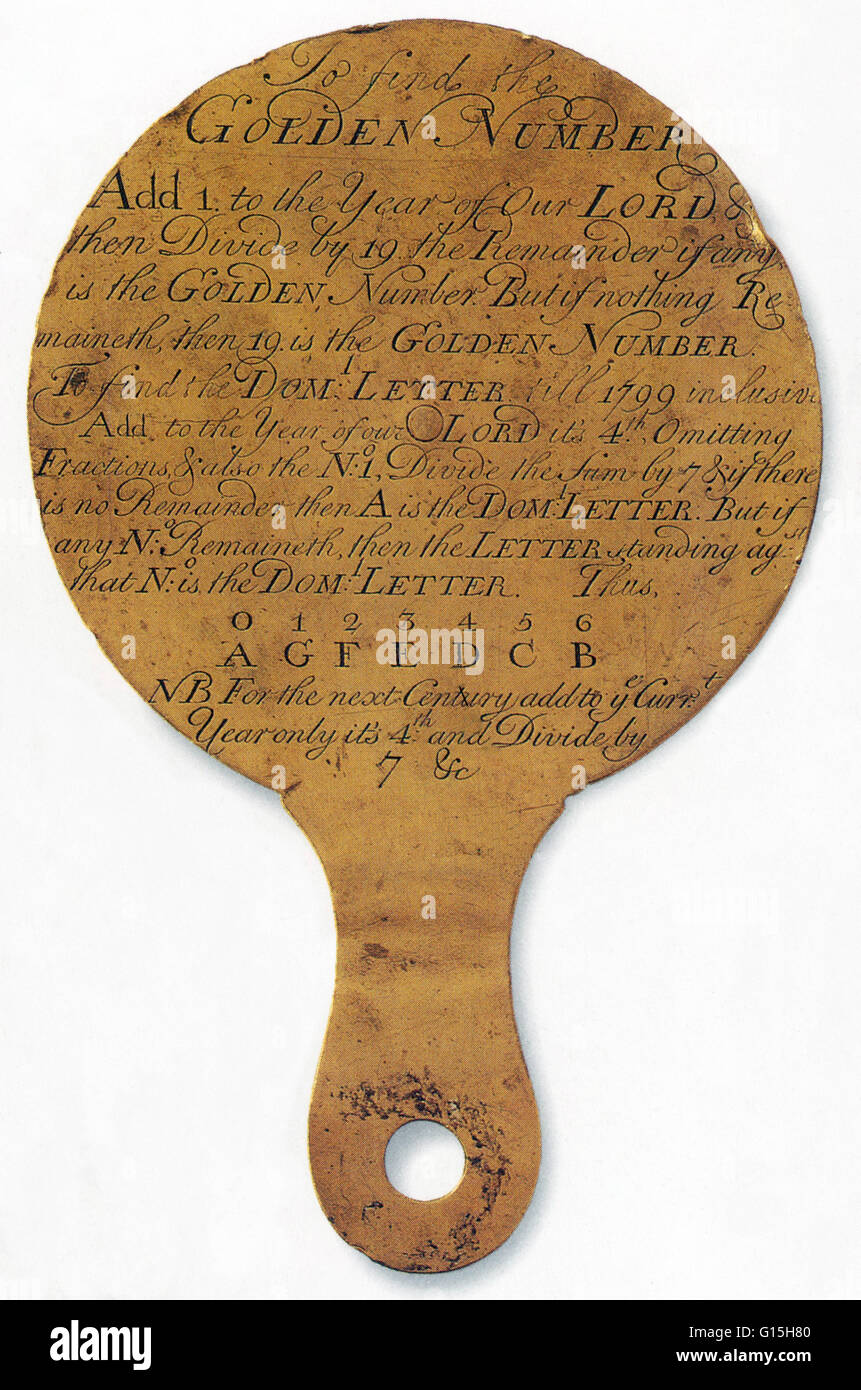 To find the
GOLDEN NUMBER
Add 1. to the Year of Our LORD, &
then Divide by 19. the Remainder if any,
is the GOLDEN, Number. But if nothing Re
maineth, then 19. is the GOLDEN NUMBER.
To find the DOM:l LETTER till 1799 inclusive
Add to the Year of our LORD it's 4th. Omitting
Fractions, & also the N:o 1, Divide the Sum by 7 & if there
is no Remainder then A is the DOM:l LETTER. But if
any N:o Remaineth, then the LETTER standing ag:st
that N:o is the DOM:l LETTER. Thus,
0 1 2 3 4 5 6
A G F E D C B
NB For the next Century add to ye Curr:t
Year only it's 4th and Divide by
7 &c
alamy
Image ID: G15H80
www.alamy.com